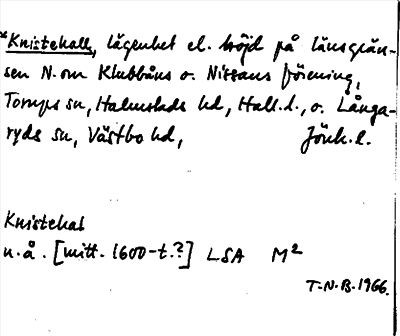 *Knistekall, lägenhet el. höjd på länsgrän-
sen N. om Klubbåns o. Nissans förening,
Torups sn, Halmstads hd, Hall. l., o. Långa-
ryds sn, Västbo hd, Jönk. l.
Knistekal
u. å. [mitt. 1600-t.?] LSA M²
T.N.B. 1966.